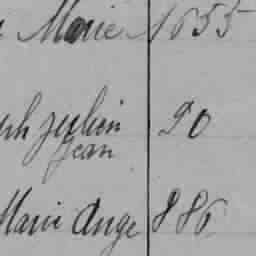 Marie 1655
julien 20
Jean
Marie Ange 886